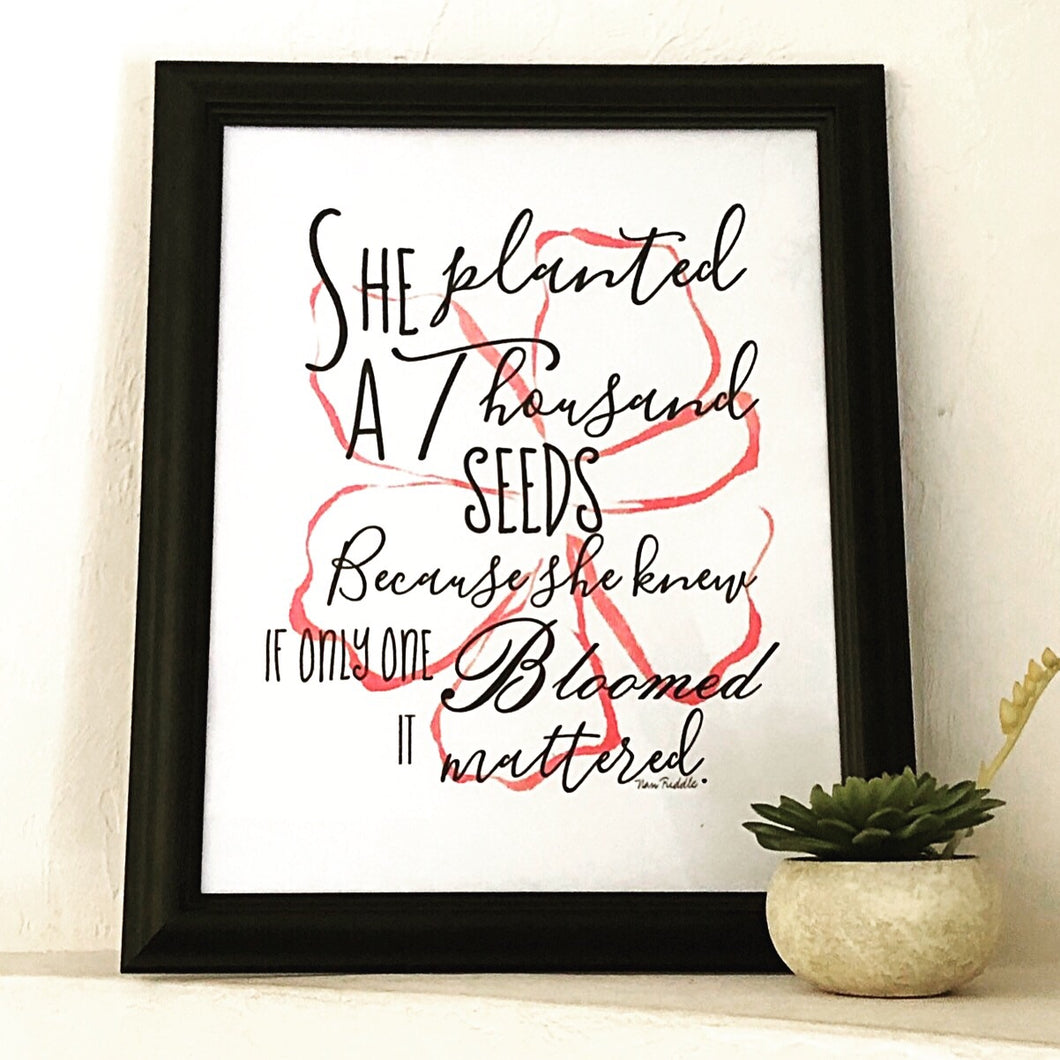 SHE planted
A Thousand
SEEDS
Because she knew
IF ONLY ONE Bloomed
IT mattered.
Nan Riddle